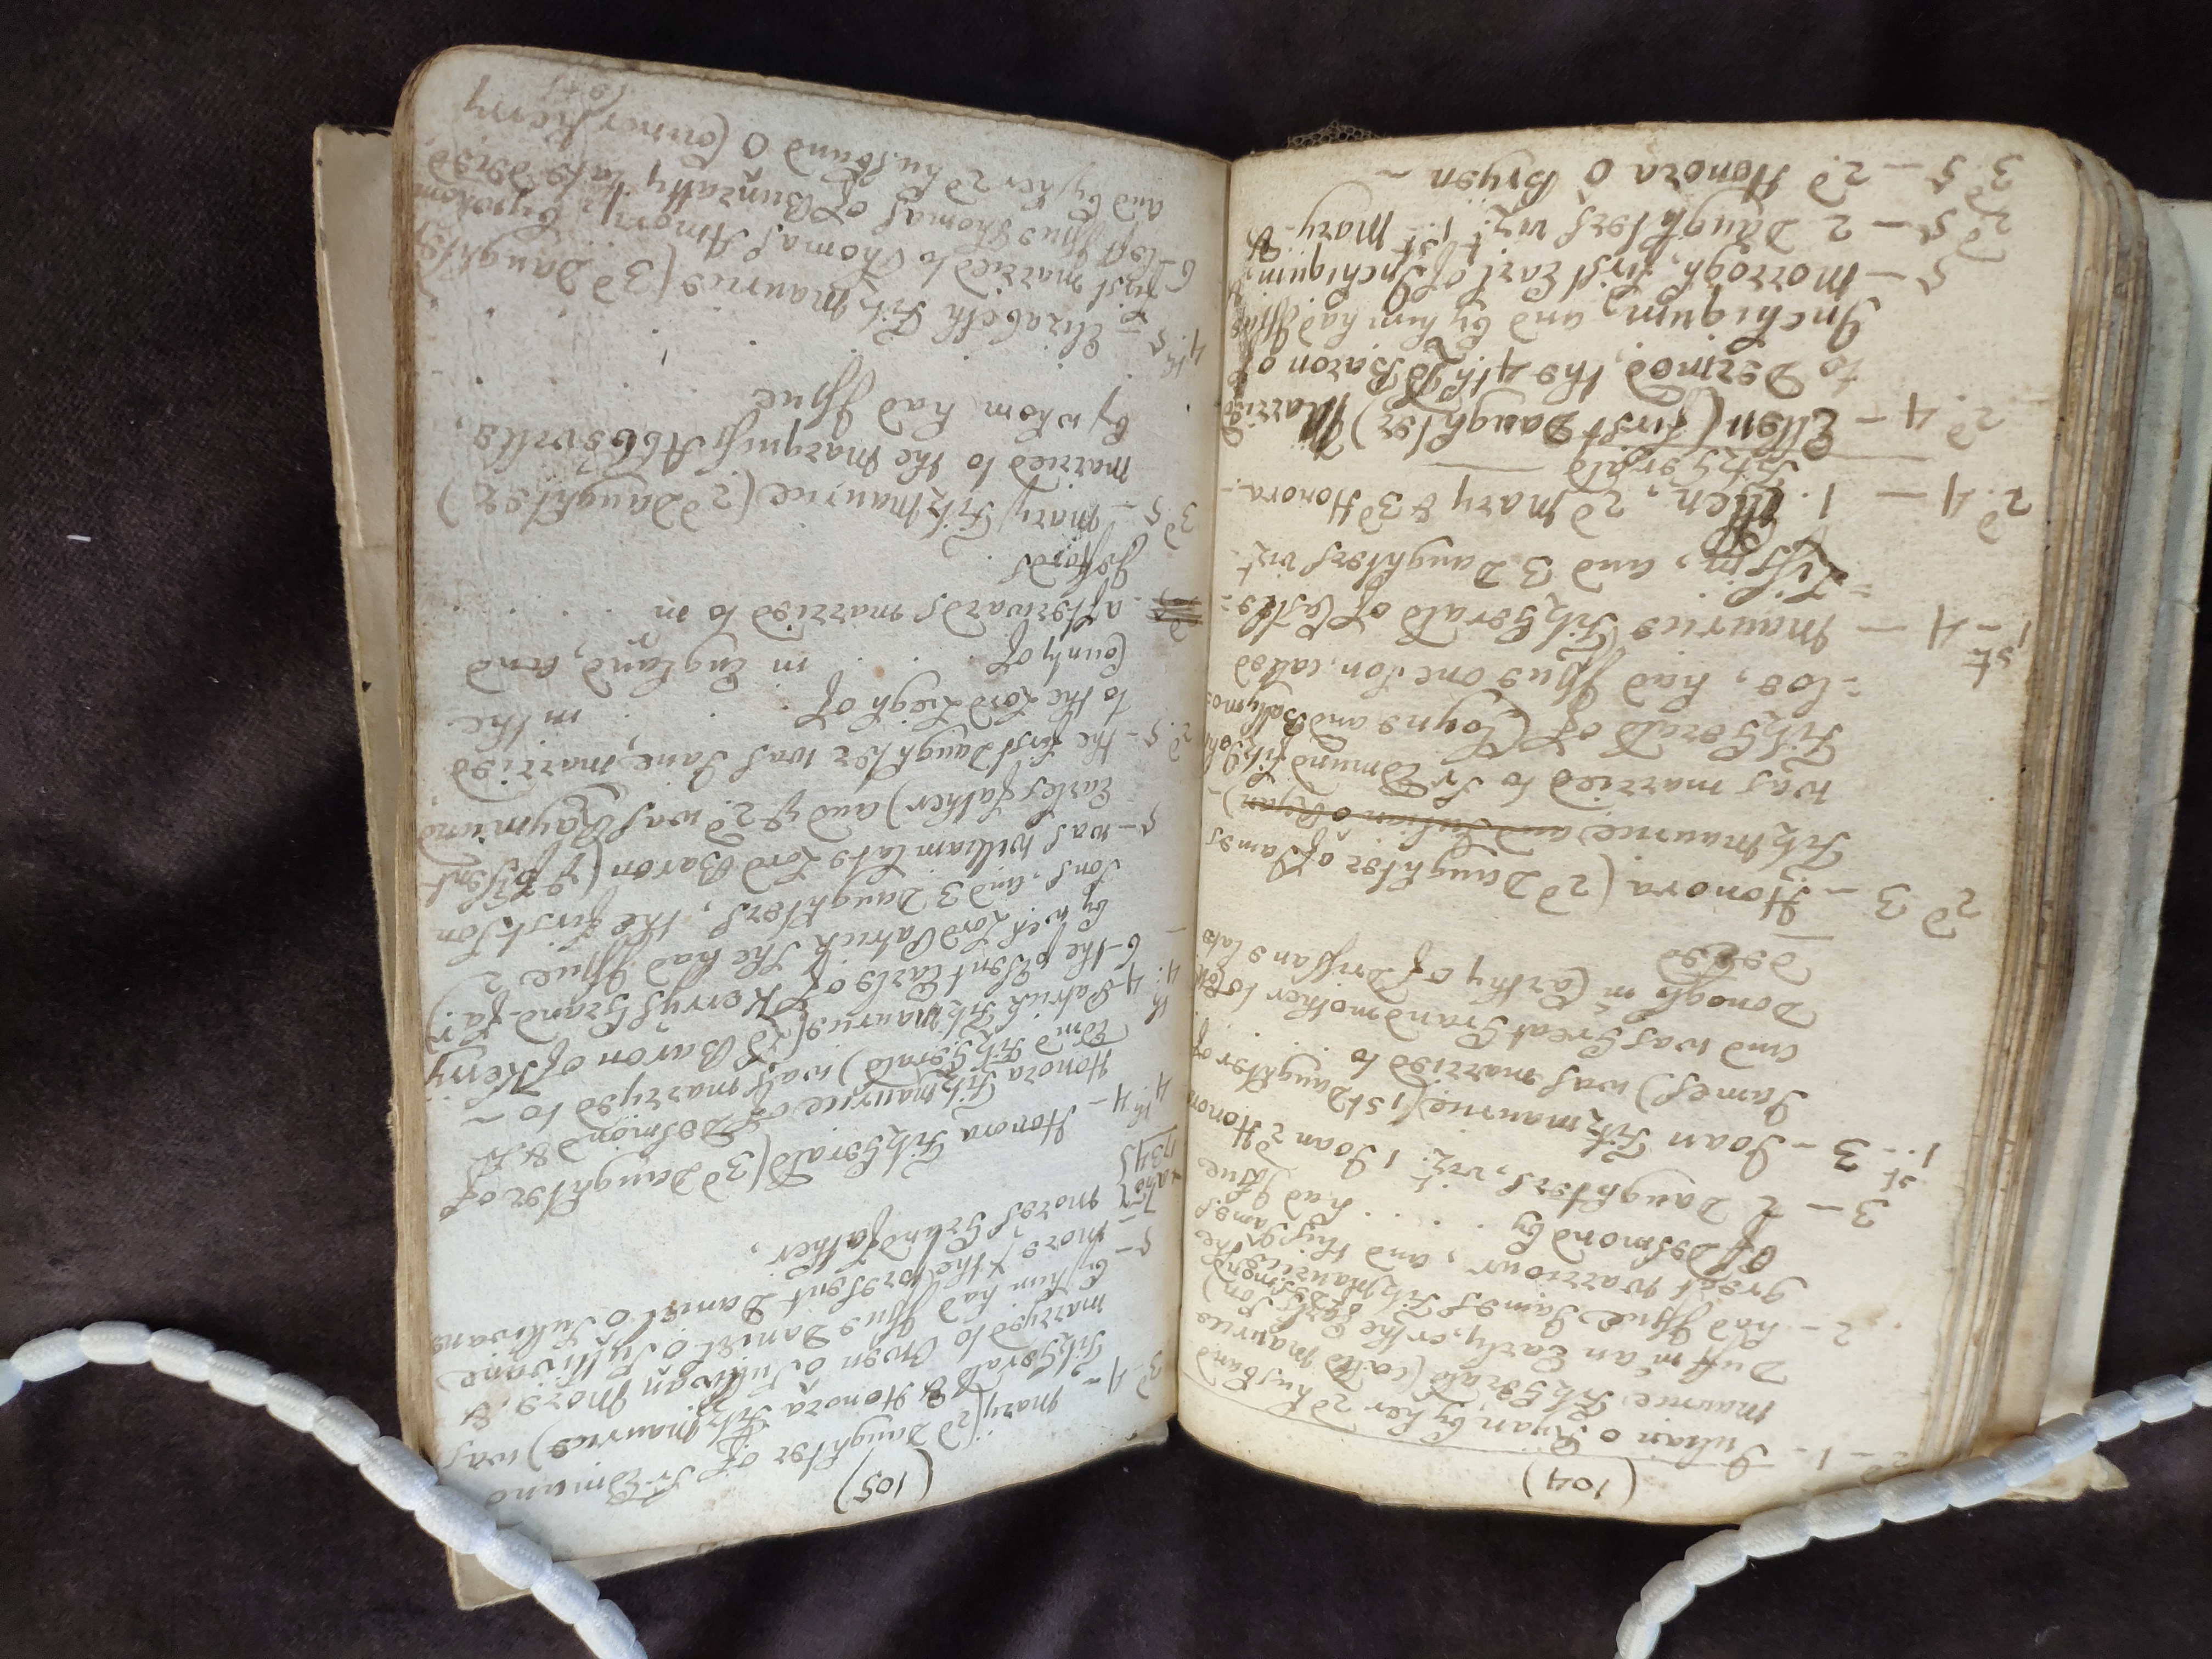 (104)
2d – 1 – Julian o Ryan by her 2d husband
Maurice FitzGerald (call'd Maurice
Duff m'an Early, or the Earls Son)
2 – had Issue James FitzMaurice the
great warriour, and this James
of Desmond by . . . . had Issue
3 – 2 Daughters, vizt. 1 Joan 2 Honora
1st 3 – Joan Fitzmaurice (1st Daughter of
James) was married to . . . .
and was Great Grandmother to
Donogh m Carthy of Drissane late
deceased
2d 3 – Honora (2d Daughter of James
FitzMaurice and Julian o Ryan) –
was married to Sr Edmund
FitzGerald of Cloyne and Ballymo=
=loe, had Issue one Son, called
1st – 4 – Maurice FitzGerald of Castle=
=Lissin, and 3 Daughters vizt
2d 4 – 1. Ellen, 2d Mary & 3d Honora.
FitzGerald
2d. 4 – Ellen (first Daughter) Married
to Dermod, the 4th Ld Baron of
Inchiquin, and by him had Issue
5 – Morrogh, first Earl of Inchiquin, &
2d 5 – 2 Daughters vizt. 1st Mary &
3d 5 – 2d Honora O Bryen ~
(105)
3d 4 – Mary (2d Daughter of Sr Edmund
FitzGerald & Honora FitzMaurice) was
marryed to Owen o Sullivan More. &
by him had Issue Daniel o Sullivane
5 – More & the present Daniel o Sullivane
mores Grandfather,
1734/5
4th 4 – Honora FitzGerald (3d Daughter of
Honora Fitzmaurice of Desmond & Sr
Edmd FitzGerald) was marryed to –
4. 4 Patrick Fitzmaurice (Ld Baron of Kerry
6 – the present Earle of Kerrys Grand-far)
by wch Lord Patrick She had Issue 2
Sons, and 3 Daughters, the first Son
5 – was William late Lord Baron (ye present
Earles father) and ye 2d was Raymund,
2d. 5 – the first Daughter was Jane, married
to the Lord Liegh of . . . in the
County of . . . in England, and
afterwards married to m . . . .
Geffords
3d 5 – Mary FitzMaurice (2d Daughter)
married to the Marquiss Abbeville,
by whom had Issue
4th. 5 – Elizabeth FitzMaurice (3d Daughter
first married to Thomas Amory, by whom
6 – left Issue Thomas of Bunratty late decd
and by her 2d husband O Connor Kerry